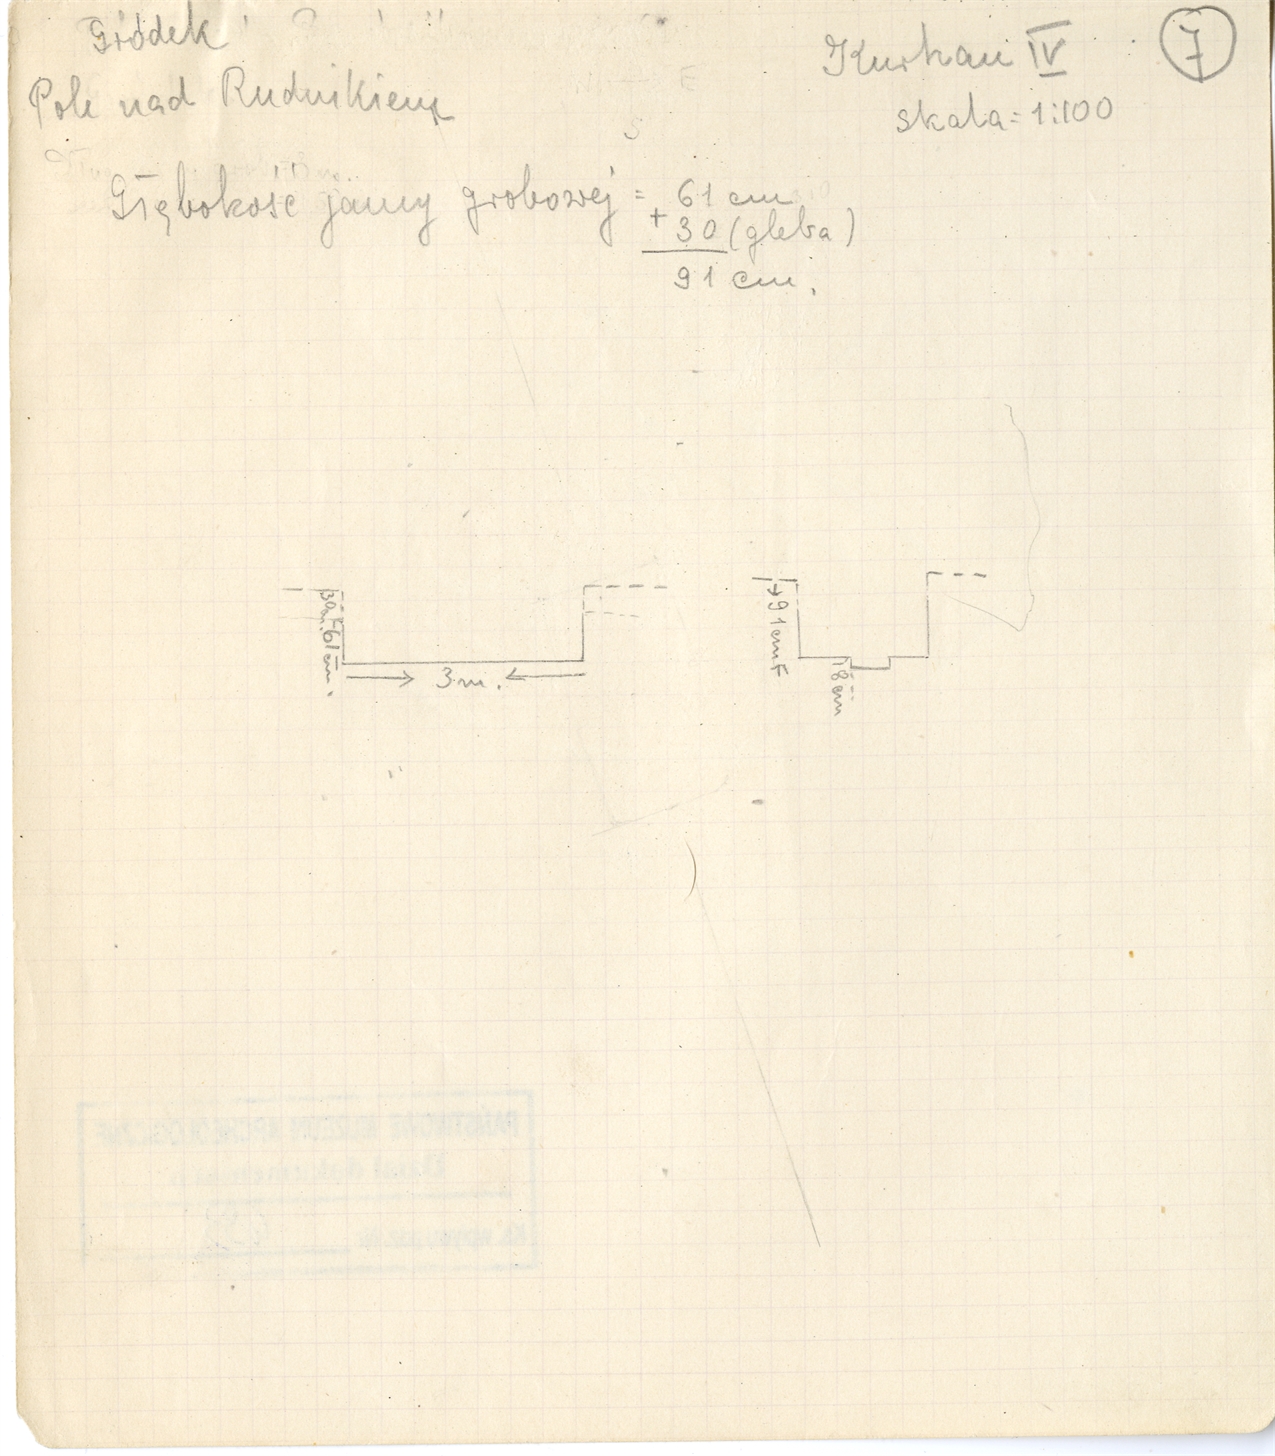 Gródek
Pole nad Rudnikiem
Kurhan IV
7
skala = 1:100
Głębokość jamy grobowej = 61 cm
+ 30 (gleba)
91 cm.
30
61 cm.
3 m.
91 cm
8 cm